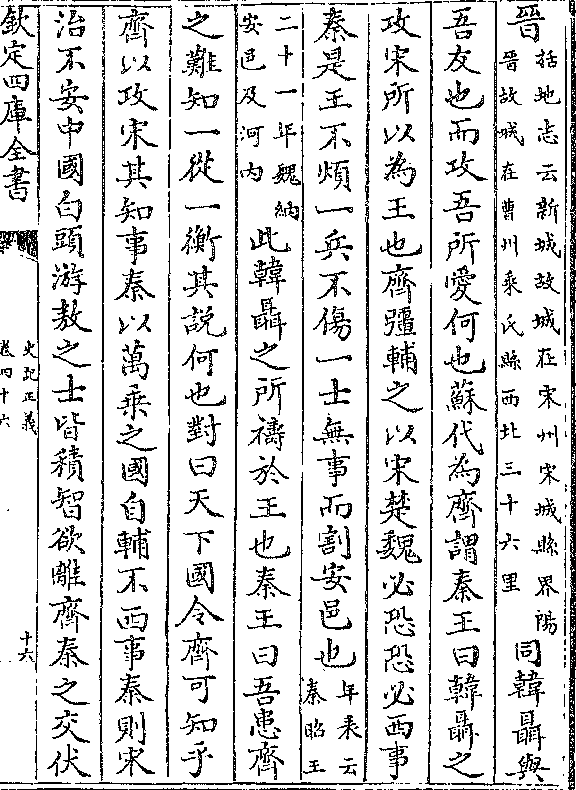 晉括地志云新城故城在宋州宋城縣界陽晉故城在曹州乘氏縣西北三十六里同韓聶與
吾友也而攻吾所愛何也蘇代為齊謂秦王曰韓聶之
攻宋所以為王也齊彊輔之以宋楚魏必恐恐必西事
秦是王不煩一兵不傷一士無事而割安邑也年表云秦昭王
二十一年魏納安邑及河内此韓聶之所禱於王也秦王曰吾患齊
之難知一從一衡其説何也對曰天下國令齊可知乎
齊以攻宋其知事秦以萬乘之國自輔不西事秦則宋
治不安中國白頭游敖之士皆積智欲離齊秦之交伏
欽定四庫全書
史記正義
卷四十六
十六